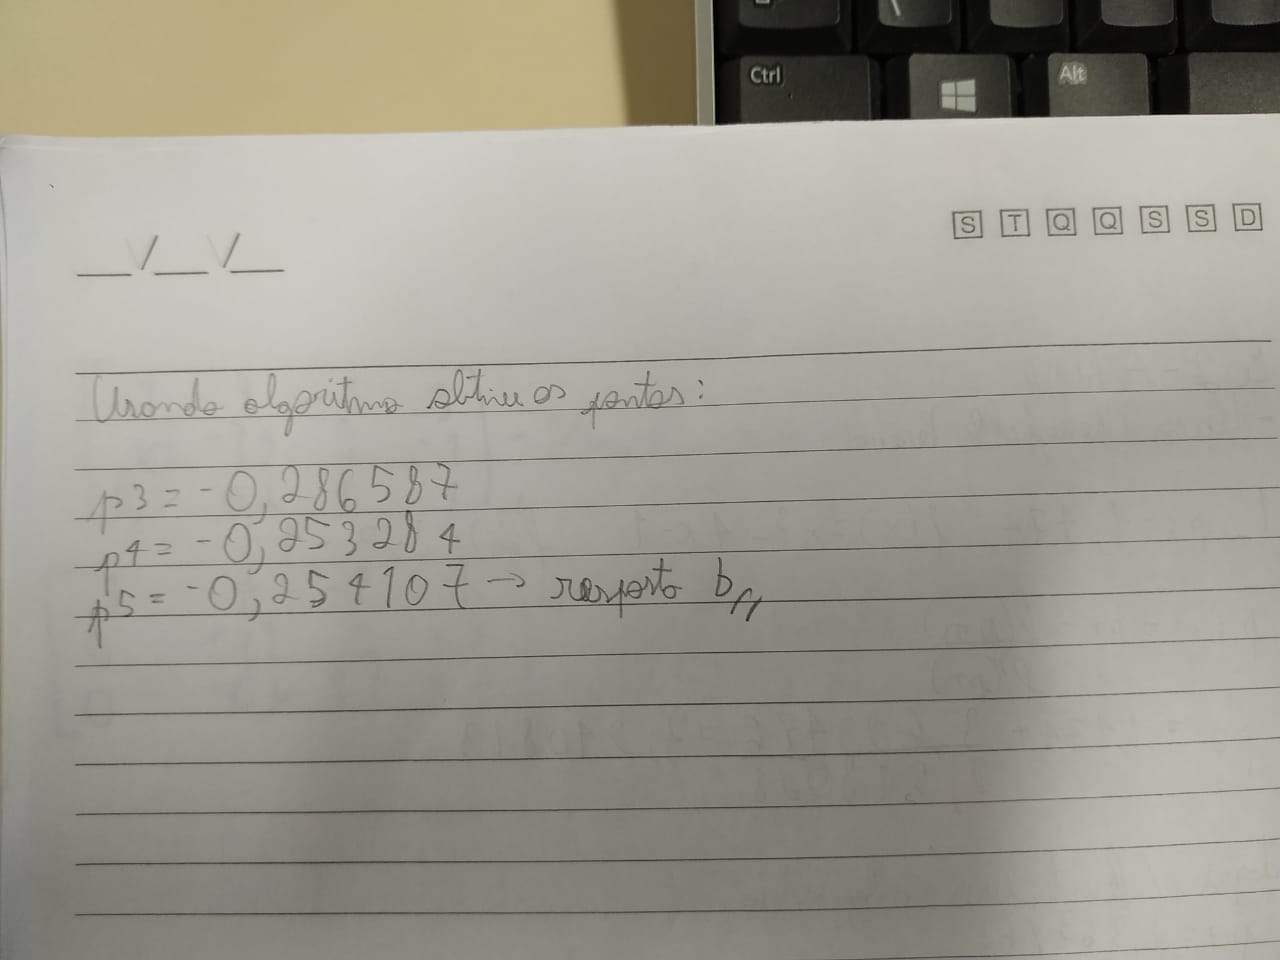 Ctrl
Alt
__/__/__
S T Q Q S S D
Usando algoritmo obtive os pontos:
p3 = -0,286587
p4 = -0,253284
p5 = -0,254107 → resposta b//